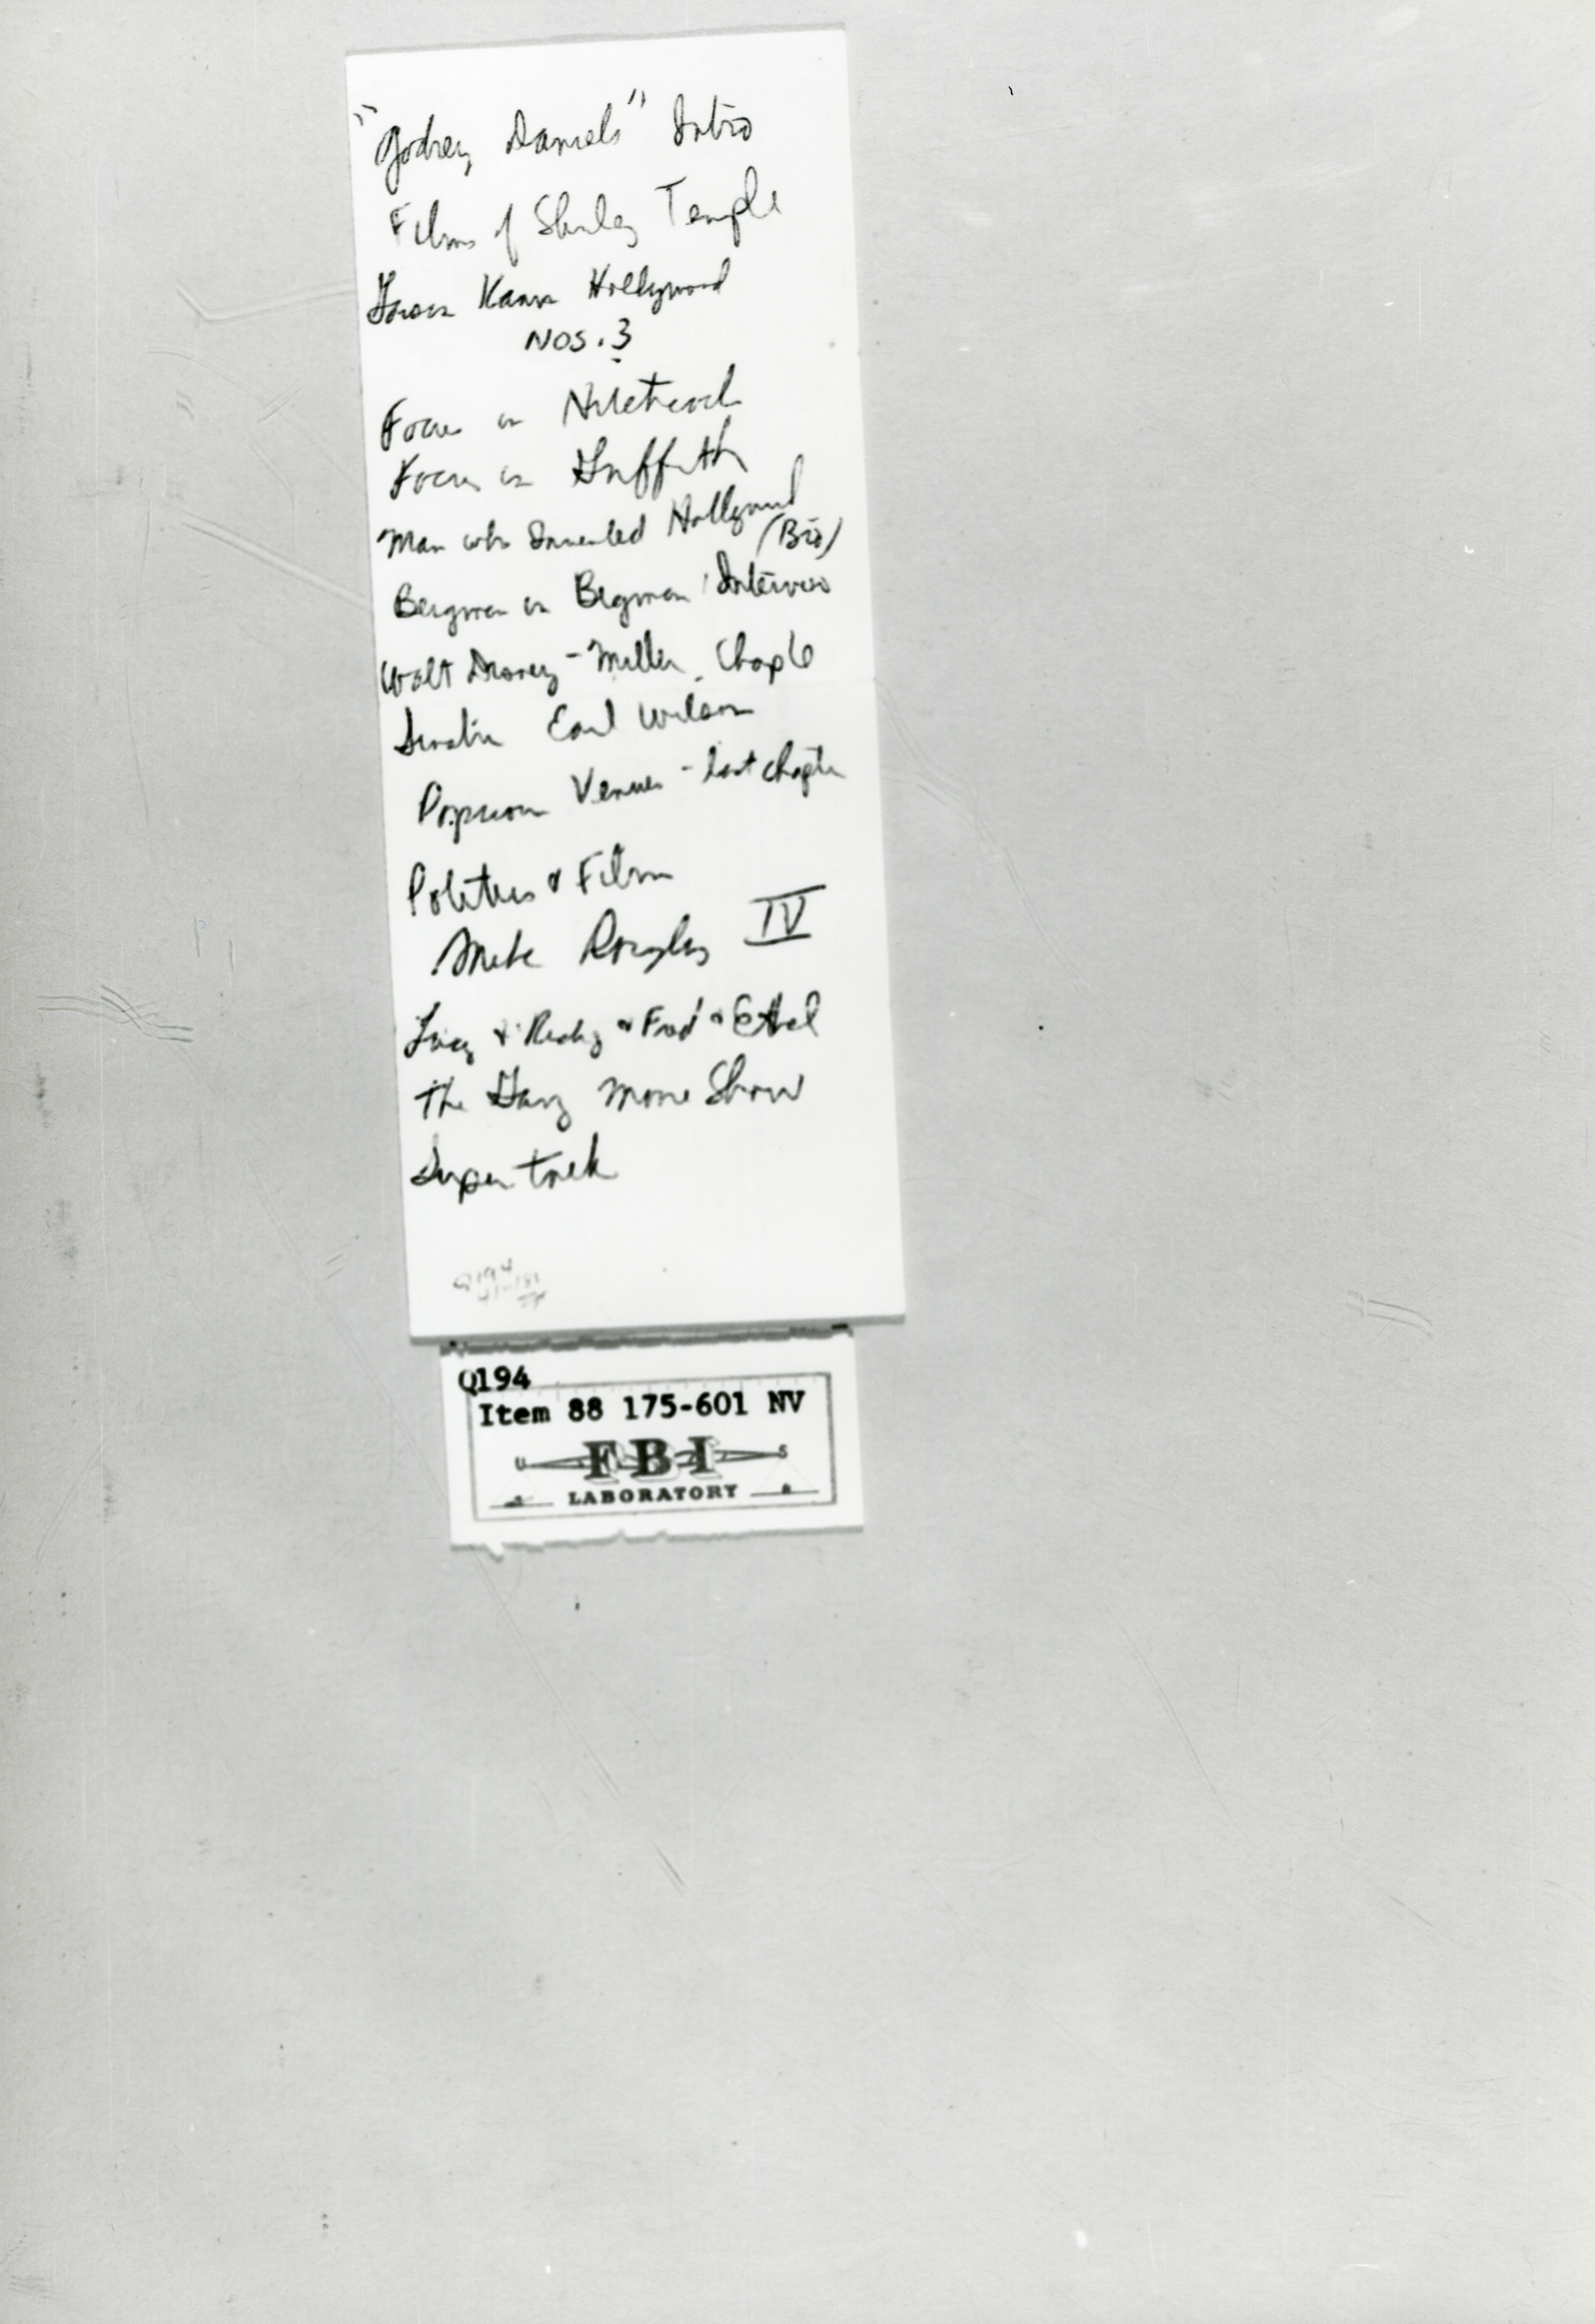 "Godrey Daniels" Intro
Films of Shirley Temple
Karr Hollywood
NOS. 3
Focus on Hitchcock
Focus on Griffith
Man who Invented Hollywood
(Bio)
Bergman on Bergman Interview
Walt Disney - Miller. Chap 6
Sinatra Earl Wilson
Popcorn Venus - last chapter
Politics & Film
Mike Douglas IV
Lucy & Ricky & Fred & Ethel
The Gary Moore Show
Super Trek
Q194
Q194
Item 88 175-601 NV
U S
FBI
LABORATORY